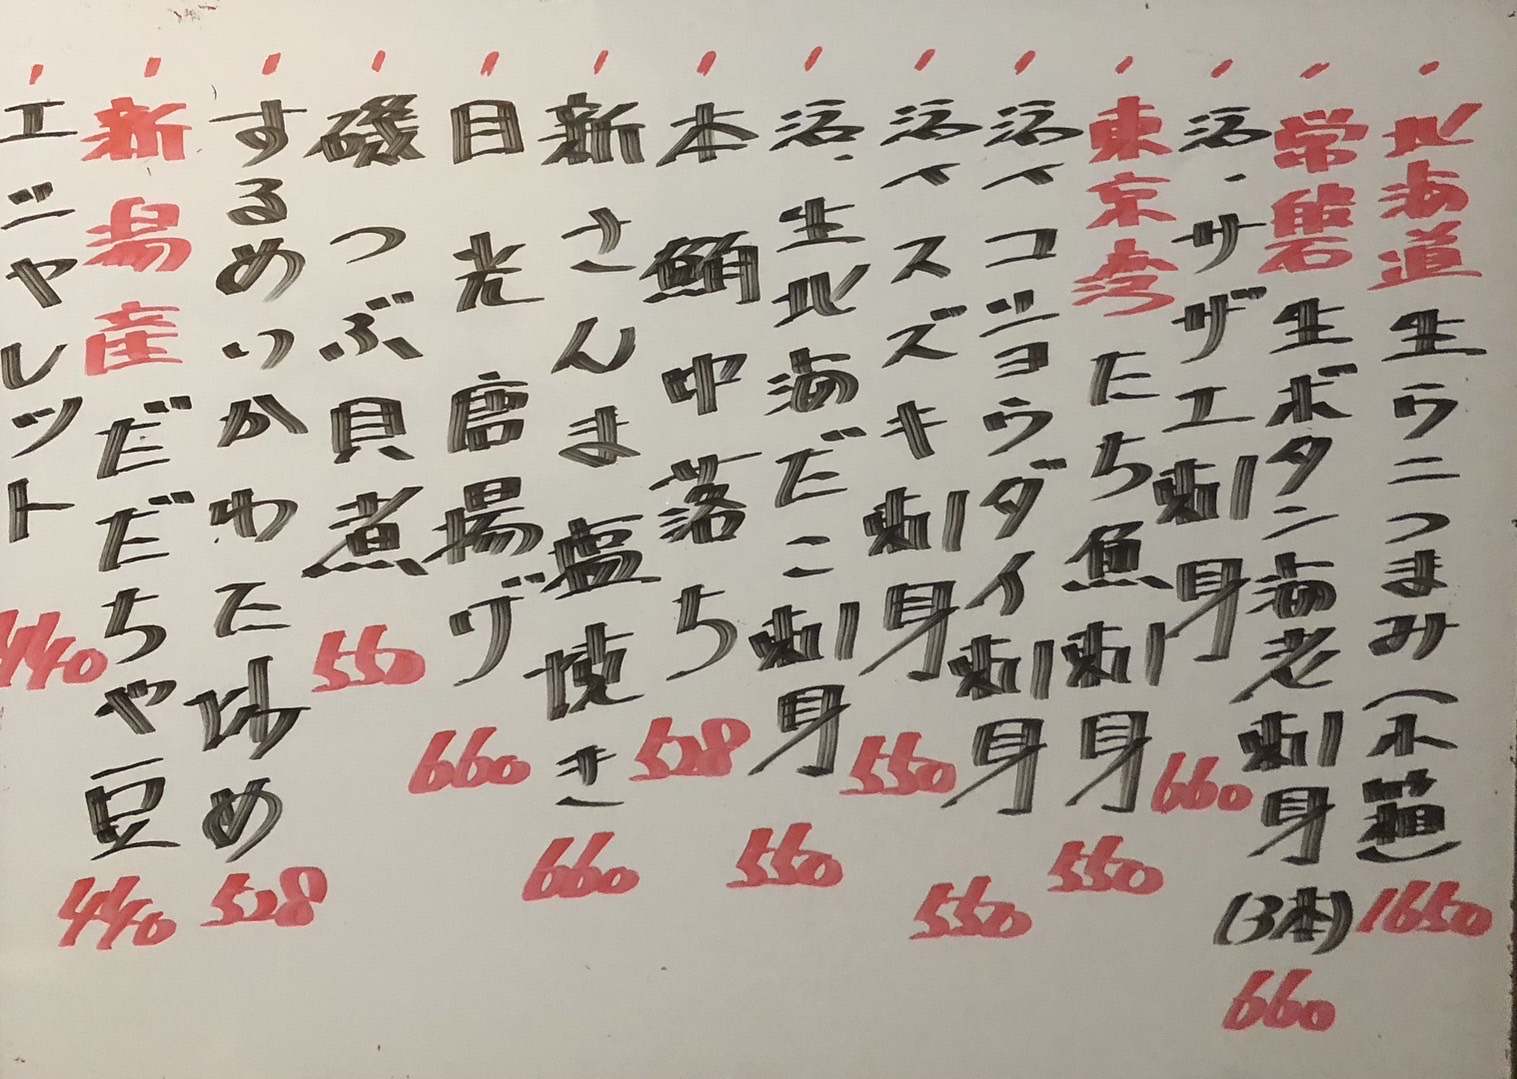 北海道生ウニつまみ(小箱)1650
常磐生ボタン海老刺身(3本)660
活・サザエ刺身660
東京湾たち魚刺身550
活〆コショウダイ刺身550
活〆スズキ刺身550
活・生北海だこ刺身550
本鮪中落ち528
新さんま塩焼き660
目光唐揚げ660
磯つぶ貝煮550
するめいかわた炒め528
新潟産だだちゃ豆440
エシャレット440